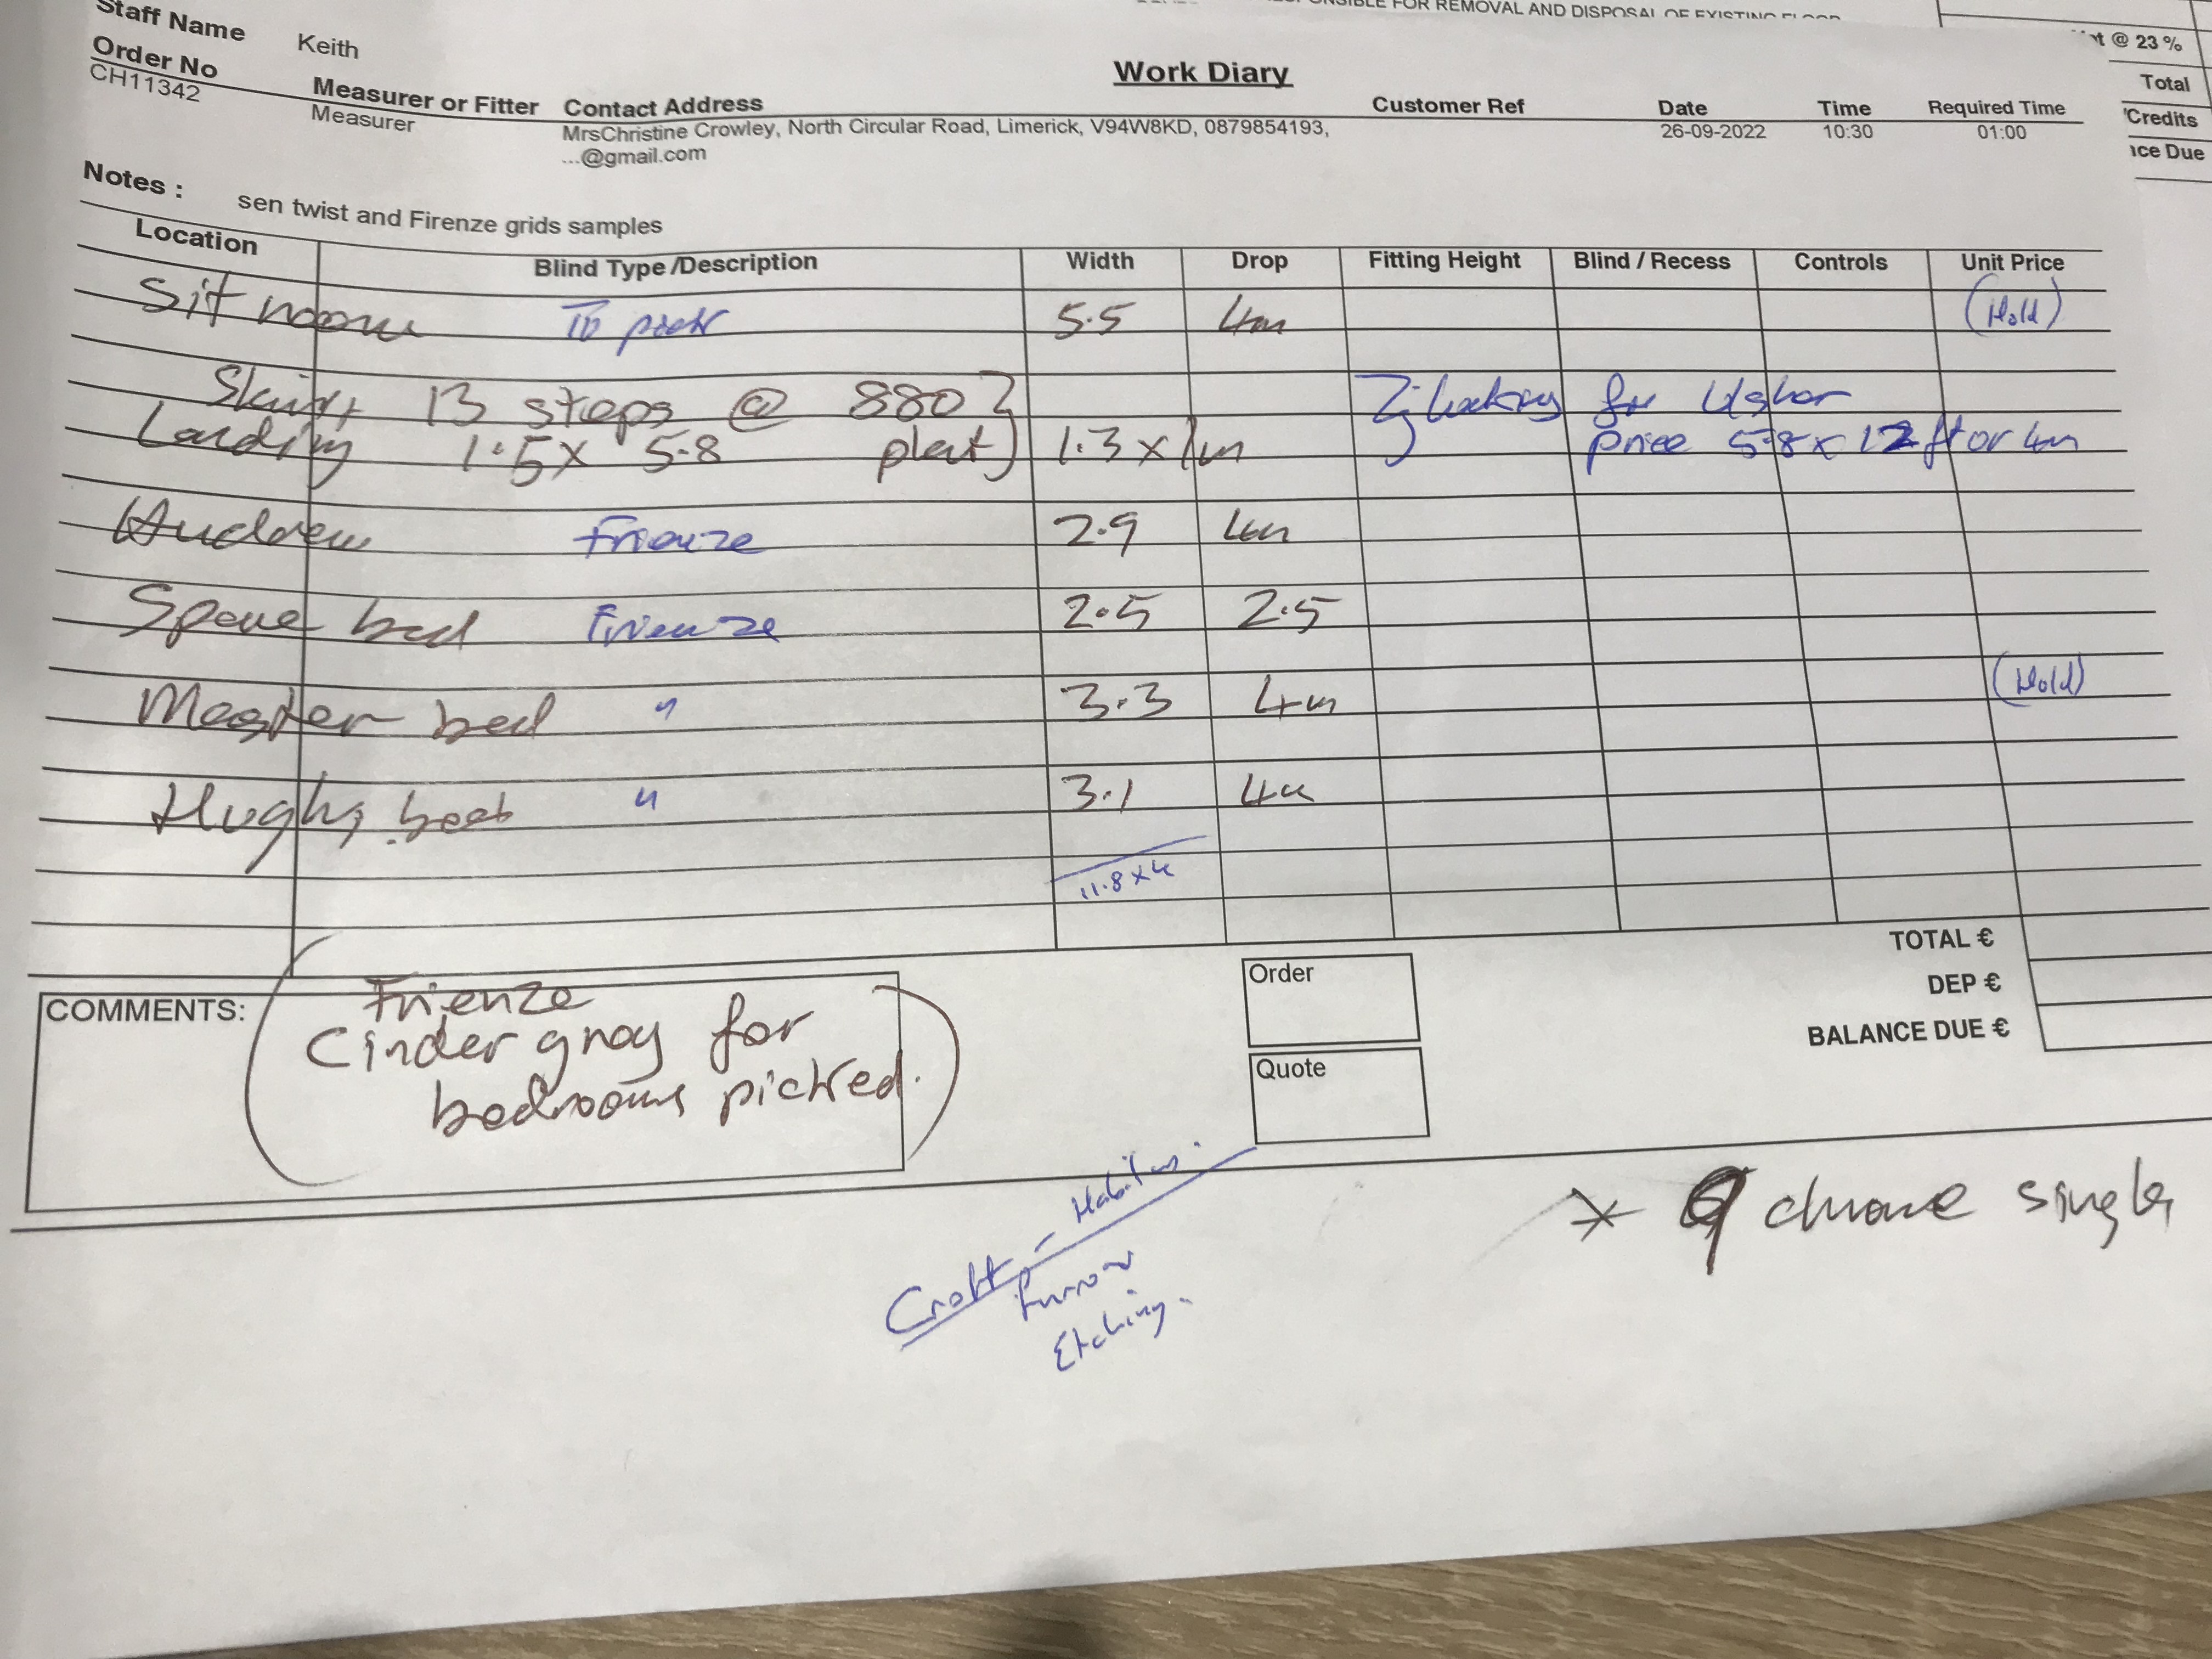 RESPONSIBLE FOR REMOVAL AND DISPOSAL OF EXISTING FLOOR
@ 23 %
Total
Credits
Due
Staff Name Keith
Work Diary
Order No Measurer or Fitter Contact Address Customer Ref Date Time Required Time
CH11342 Measurer MrsChristine Crowley, North Circular Road, Limerick, V94W8KD, 0879854193, 26-09-2022 10:30 01:00
...@gmail.com
Notes : sen twist and Firenze grids samples
Location Blind Type /Description Width Drop Fitting Height Blind / Recess Controls Unit Price
Sit room To pick 5.5 4m (Hold)
13 steps @ 880 looking for
Landing 1.5 x 5.8 plat 1.3 x 1m price 5.8 x 12ft or 4m
Frienze 2.9 4m
Spare bed Frienze 2.5 2.5
Master bed " 3.3 4m (Hold)
Hughs " 3.1 4m
11.8 x 4
TOTAL €
DEP €
BALANCE DUE €
COMMENTS: Frienze
Cinder gray for
bedrooms picked.
Order
Quote
Croft - Habitus.
Furrow
Etching.
* 9 chrome singles